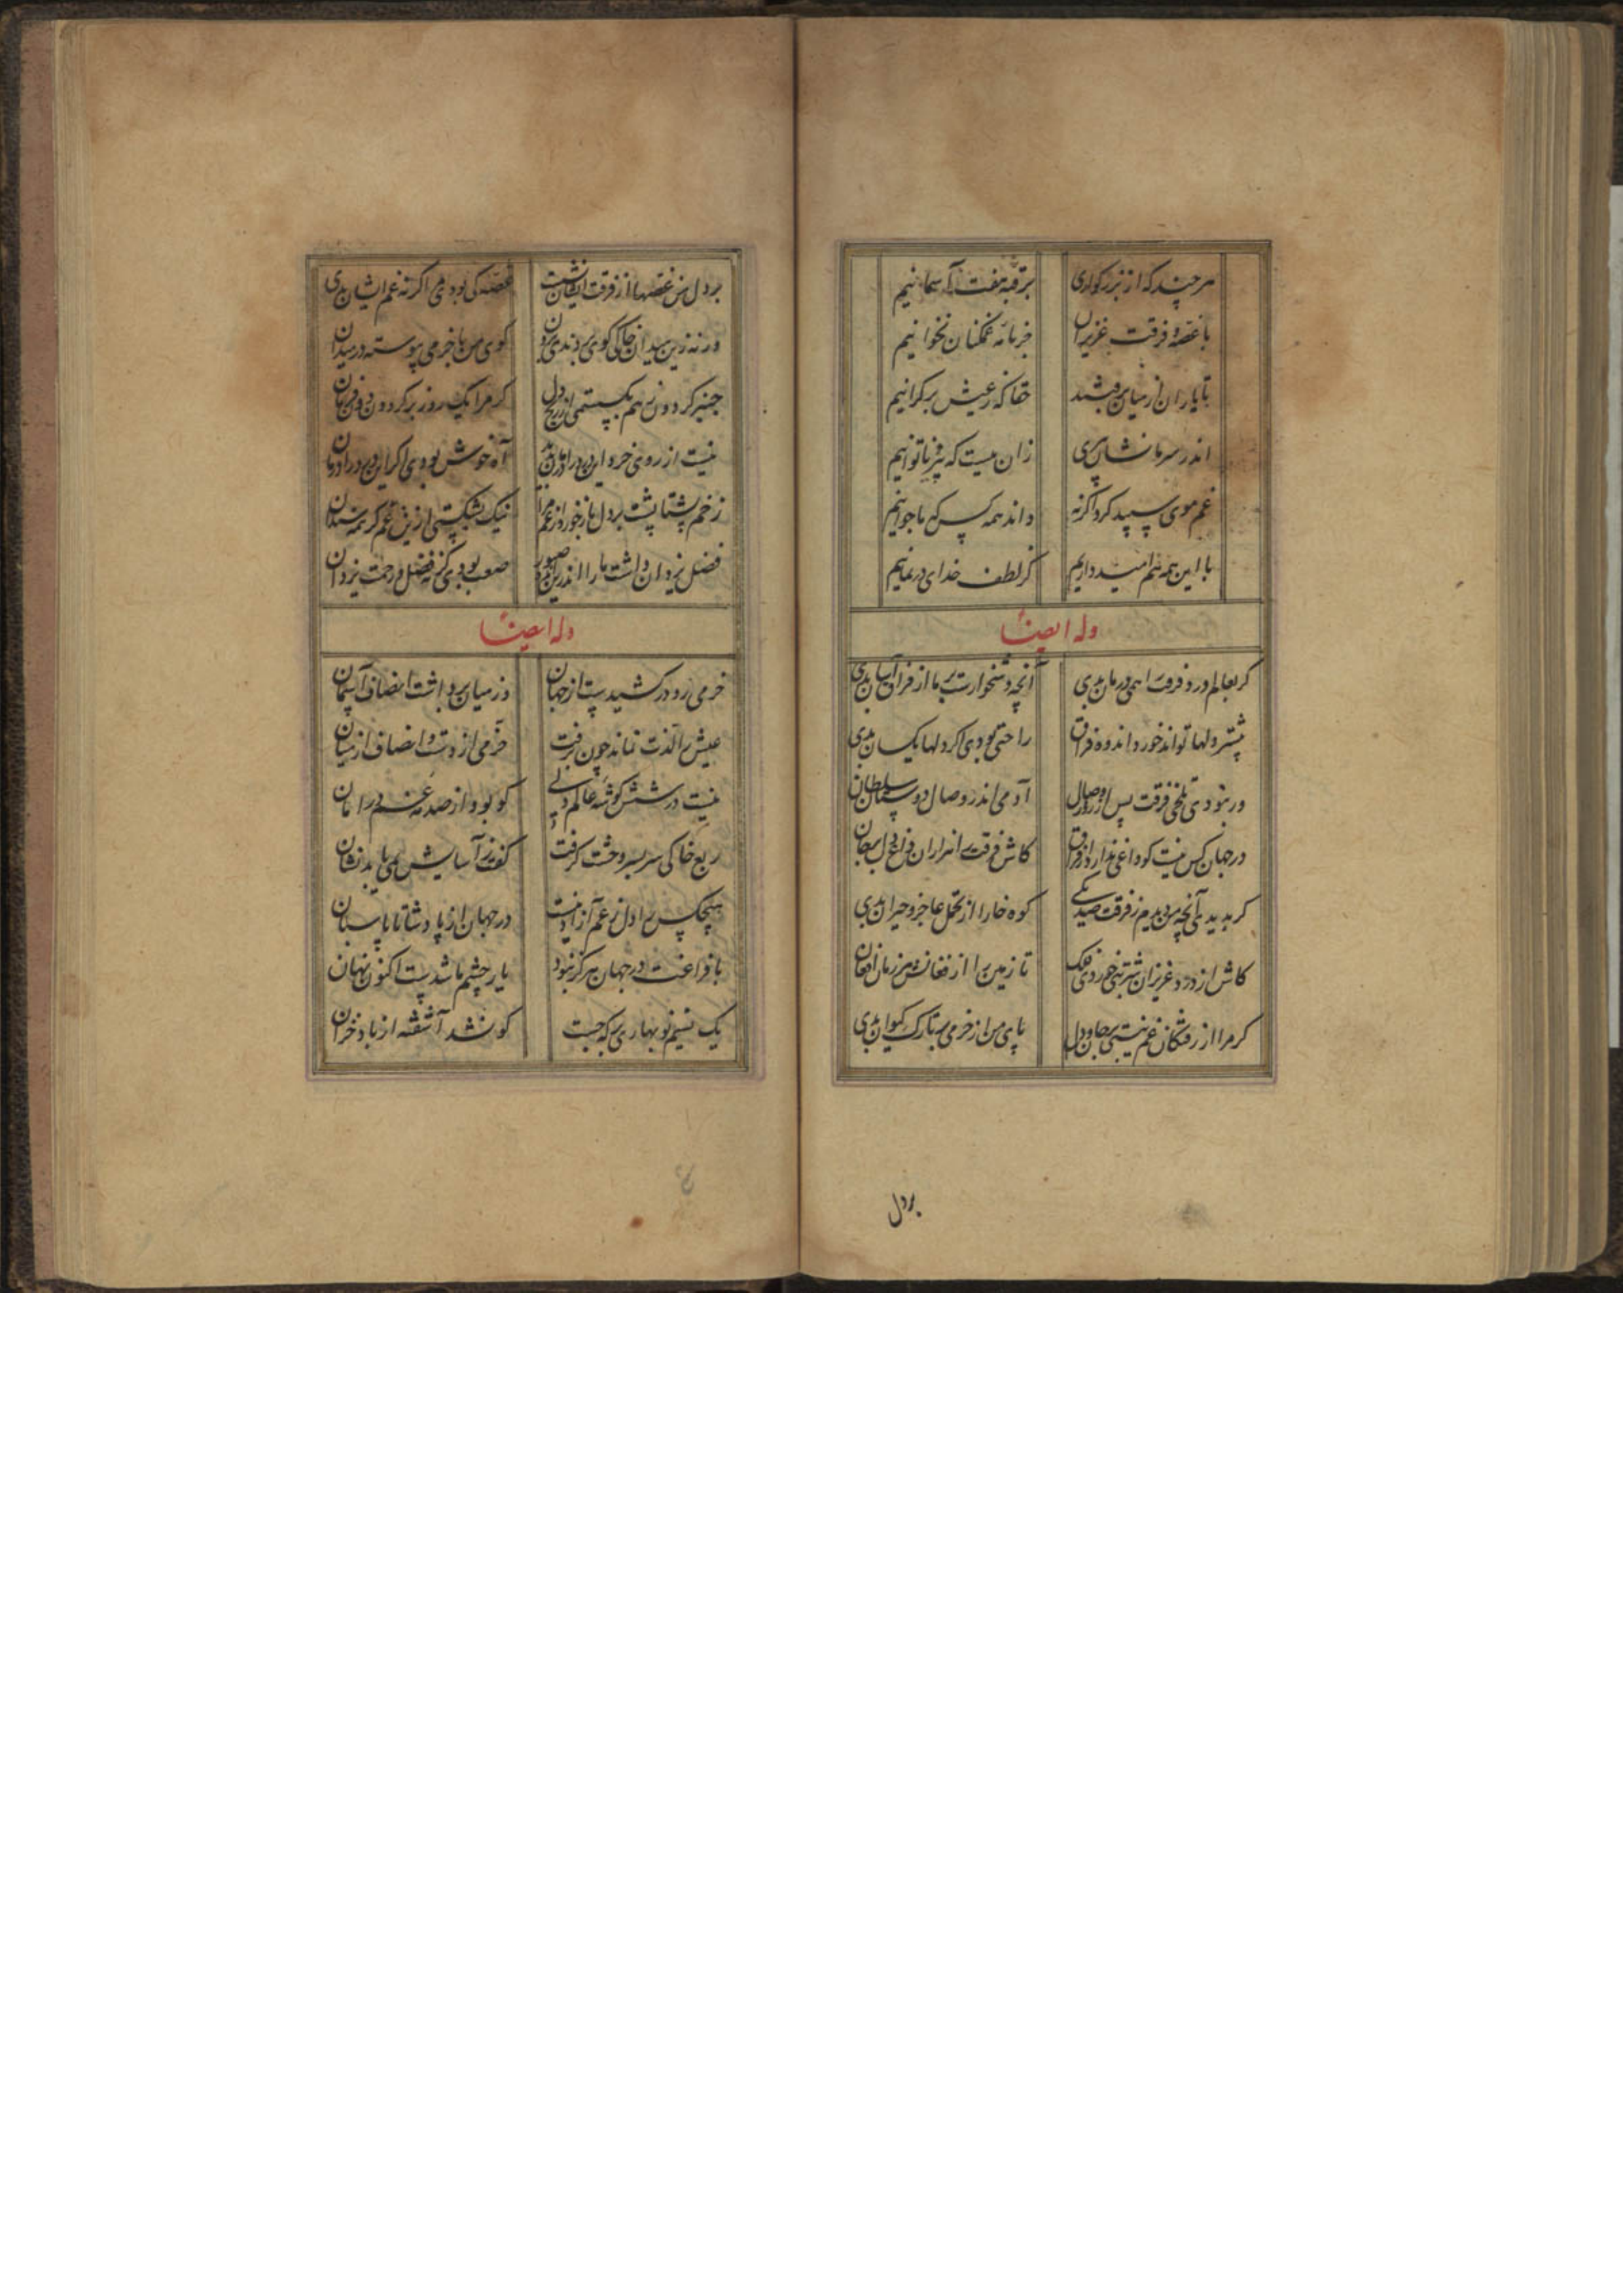 هر چند که از بزرگواری برقبه هفت آسمانیم
با غصه فرقت عزیزان جز نامه غمگنان نخوانیم
تا یاران از میان برفتند حقا که ز عیش بر کرانیم
اندر سر ما نشان پیری زان نیست که پیر و ناتوانیم
غم موی سپید کرد اگر نه داند همه کس که ما جوانیم
با این همه هم امید داریم کز لطف خدای در نمانیم
وله ایضاً
گر بعالم درد فرقت را همی درمان بدی آنچه دشخوارست بر ما از فراق آسان بدی
بیشتر دلها تواند خورد اندوه فراق راحتی بودی اگر دلها یکسان بدی
ور نبودی تلخی فرقت پس از روز وصال آدمی اندر وصال دوستان سلطان بدی
در جهان کس نیست کو داغی ندارد از فراق کاش فرقت را هزاران داغ دل بر جان بدی
گر بدیدی آنچه من دیدم ز فرقت صد یکی کوه خارا از تحمل عاجز و حیران بدی
کاش از درد عزیزان شربتی خوردی فلک تا زمین را از فغانش هر زمان افغان بدی
گر مرا از رفتگان غم نیستی بر جان و دل پای من از خرمی بر تارک کیوان بدی
بردل
بر دل من غصها از فرقت ایشان نشست غصه کی بودی مرا گر نه غم ایشان بدی
ورنه زین میدان خاکی گوی بردندی برون گوی من با خرمی پیوسته در میدان بدی
چنبر گردون ز هم بگسستمی از رنج دل گر مرا یک روز بر گردون دون فرمان بدی
نیست از روی خرد این درد را درمان پدید آه خوش بودی اگر این درد را درمان بدی
زخم پشتا پشت بر دل باز خورد از غم مرا نیک بشکستی ازین غم گر همه سندان بدی
فضل یزدان داشت ما را اندرین صبور صعب بودی گر نه فضل و رحمت یزدان بدی
وله ایضاً
خرمی رو در کشیدست از جهان وز میان برداشت انصاف آسمان
عیش را لذت نماند چون برفت خرمی از دست و انصاف از میان
نیست در شش گوشه عالم دلی کو بود از صدمه غم در امان
ربع خاکی سر بسر وحشت گرفت کس نمی یابد نشان
هیچکس را دل ز غم آزاد نیست در جهان از پادشا تا پاسبان
با فراغت در جهان هرگز نبود یار چشم ما شدست اکنون نهان
یک نسیم نوبهاری بر که جست کو نشد آشفته از باد خزان